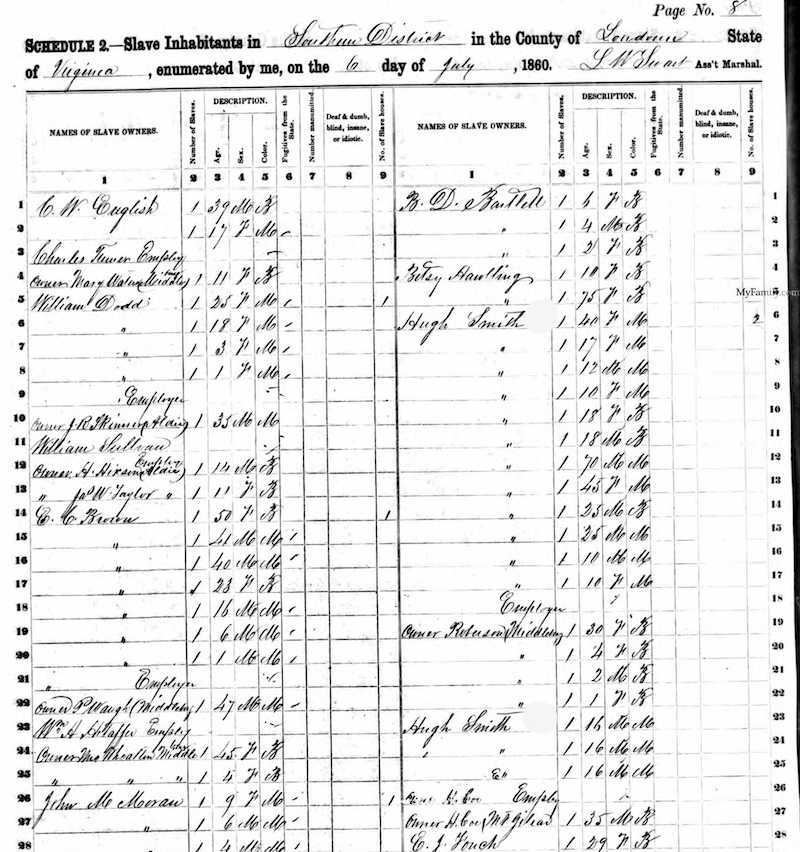 Page No. 8
SCHEDULE 2.—Slave Inhabitants in Southern District in the County of Loudoun State
of Virginia, enumerated by me, on the 6 day of July, 1860. L W Ass't Marshal.
NAMES OF SLAVE OWNERS. Number of Slaves. DESCRIPTION. Age. Sex. Color. Fugitives from the State. Number manumitted. Deaf & dumb, blind, insane, or idiotic. No. of Slave houses. NAMES OF SLAVE OWNERS. Number of Slaves. DESCRIPTION. Age. Sex. Color. Fugitives from the State. Number manumitted. Deaf & dumb, blind, insane, or idiotic. No. of Slave houses.
1 2 3 4 5 6 7 8 9 1 2 3 4 5 6 7 8 9
1 C. W. English 1 39 M B B. D. Bartlett 1 6 F B 1
2 1 17 F M " 1 4 M B 2
3 Charles Turner Employ " 1 2 F B 3
4 Owner Mary 1 11 F B Betsy Hawling 1 10 F B 4
5 William Dodd 1 25 F M 1 " 1 75 F B 5
MyFamily.com
6 " 1 18 F M Hugh Smith 1 40 F M 2 6
7 " 1 3 F M " 1 17 F M 7
8 " 1 1 F M " 1 12 M M 8
9 Employer " 1 10 F M 9
10 Owner J. R. Skinner Aldie 1 35 M M " 1 18 F B 10
11 William Sullivan " 1 18 M B 11
12 Owner H. Aldie 1 14 M B " 1 70 M M 12
13 " Jas W. Taylor " 1 11 F B " 1 45 F M 13
14 E. C. Brown 1 50 F B 1 " 1 25 M B 14
15 " 1 41 M M " 1 25 M M 15
16 1 40 M M " 1 10 M M 16
17 " 1 23 F B " 1 10 F M 17
18 1 16 M M Employer 18
19 " 1 6 M M Owner Roberson Middleburg 1 30 F B 19
20 " 1 1 M M " 1 4 F B 20
21 " Employer " 1 2 M B 21
22 Owner P Waugh (Middleburg 1 47 M M " 1 1 F B 22
23 Wm H Shaffer Employ Hugh Smith 1 16 M M 23
24 Owner Mrs 1 45 F B " 1 16 M M 24
25 " " " 1 4 F B 1 16 M M 25
26 John M Moran 1 9 F M 1 H. Coe Employ 26
27 " 1 6 M M Owner H. Coe Mt Gilead 1 35 M B 27
28 " 1 4 M M E. J. Fouch 1 29 F B 28